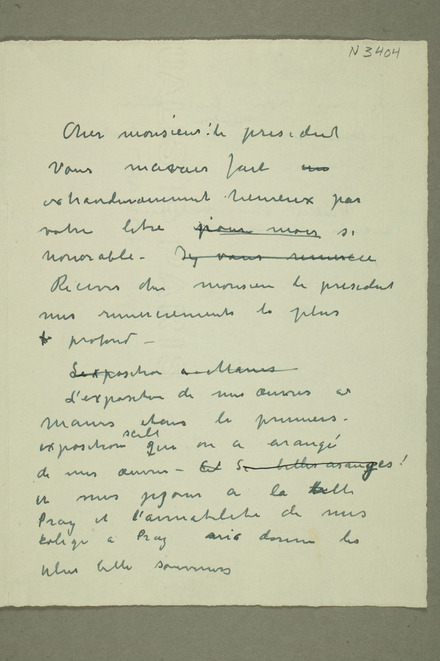 N 3404
Cher monsieur le president
Vous mavais fait un
extraordinairement heureux par
votre litre pour moi si
honorable - Je vous remercie
Recevez cher monsieur le president
mes remerciements le plus
profond -
L'exposition a Manes
L'exposition de mes œuvres a
Manes etais le premiers
exposition seul que on a arangé
de mes œuvres - Et Se belles arangés!
et mes sejour a la belle
Prag et l'aimabilite de mes
colege a Prag donne les
plus belle souvenirs